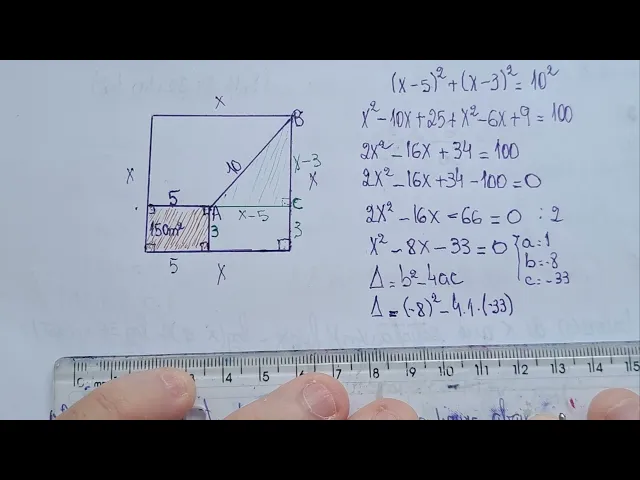 x
B
x
10
x-3
x
5
A
x-5
C
150m²
3
3
5
x
(x-5)²+(x-3)²=10²
x²-10x+25+x²-6x+9=100
2x²-16x+34=100
2x²-16x+34-100=0
2x²-16x-66=0 :2
x²-8x-33=0
a=1
b=-8
c=-33
Δ=b²-4ac
Δ=(-8)²-4.1.(-33)
4 5 6 7 8 9 10 11 12 13 14 15